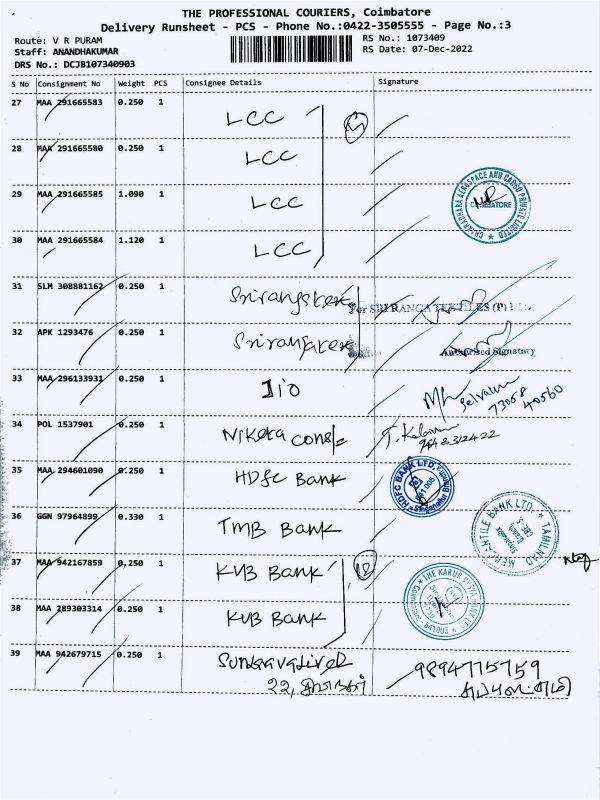 THE PROFESSIONAL COURIERS, Coimbatore
Delivery Runsheet - PCS - Phone No.:0422-3505555 - Page No.:3
Route: V R PURAM
Staff: ANANDHAKUMAR
DRS No.: DCJB107340903
RS No.: 1073409
RS Date: 07-Dec-2022
S No Consignment No Weight PCS Consignee Details Signature
27 MAA 291665583 0.250 1 LCC
28 MAA 291665580 0.250 1 LCC
29 MAA 291665585 1.090 1 LCC
CHAKRADHARA AEROSPACE AND CARGO PRIVATE LIMITED
COIMBATORE
30 MAA 291665584 1.120 1 LCC
31 SLM 308881162 0.250 1
For SRI RANGA TEXTILES (P)
32 APK 1293476 0.250 1
Authorised Signatory
33 MAA 296133931 0.250 1 Jio
Selvakum
73058
40560
34 POL 1537901 0.250 1 Nikota cons
35 MAA 294601090 0.250 1 HDFC Bank
HDFC BANK LTD.
36 GGN 97964899 0.330 1 TMB Bank
TAMILNAD MERCANTILE BANK LTD.
37 MAA 942167859 0.250 1 KVB Bank
THE KARUR VYSYA BANK LTD
641005
38 MAA 289303314 0.250 1 KVB Bank
39 MAA 942679715 0.250 1 Sundaravadivel 9894775759
22,